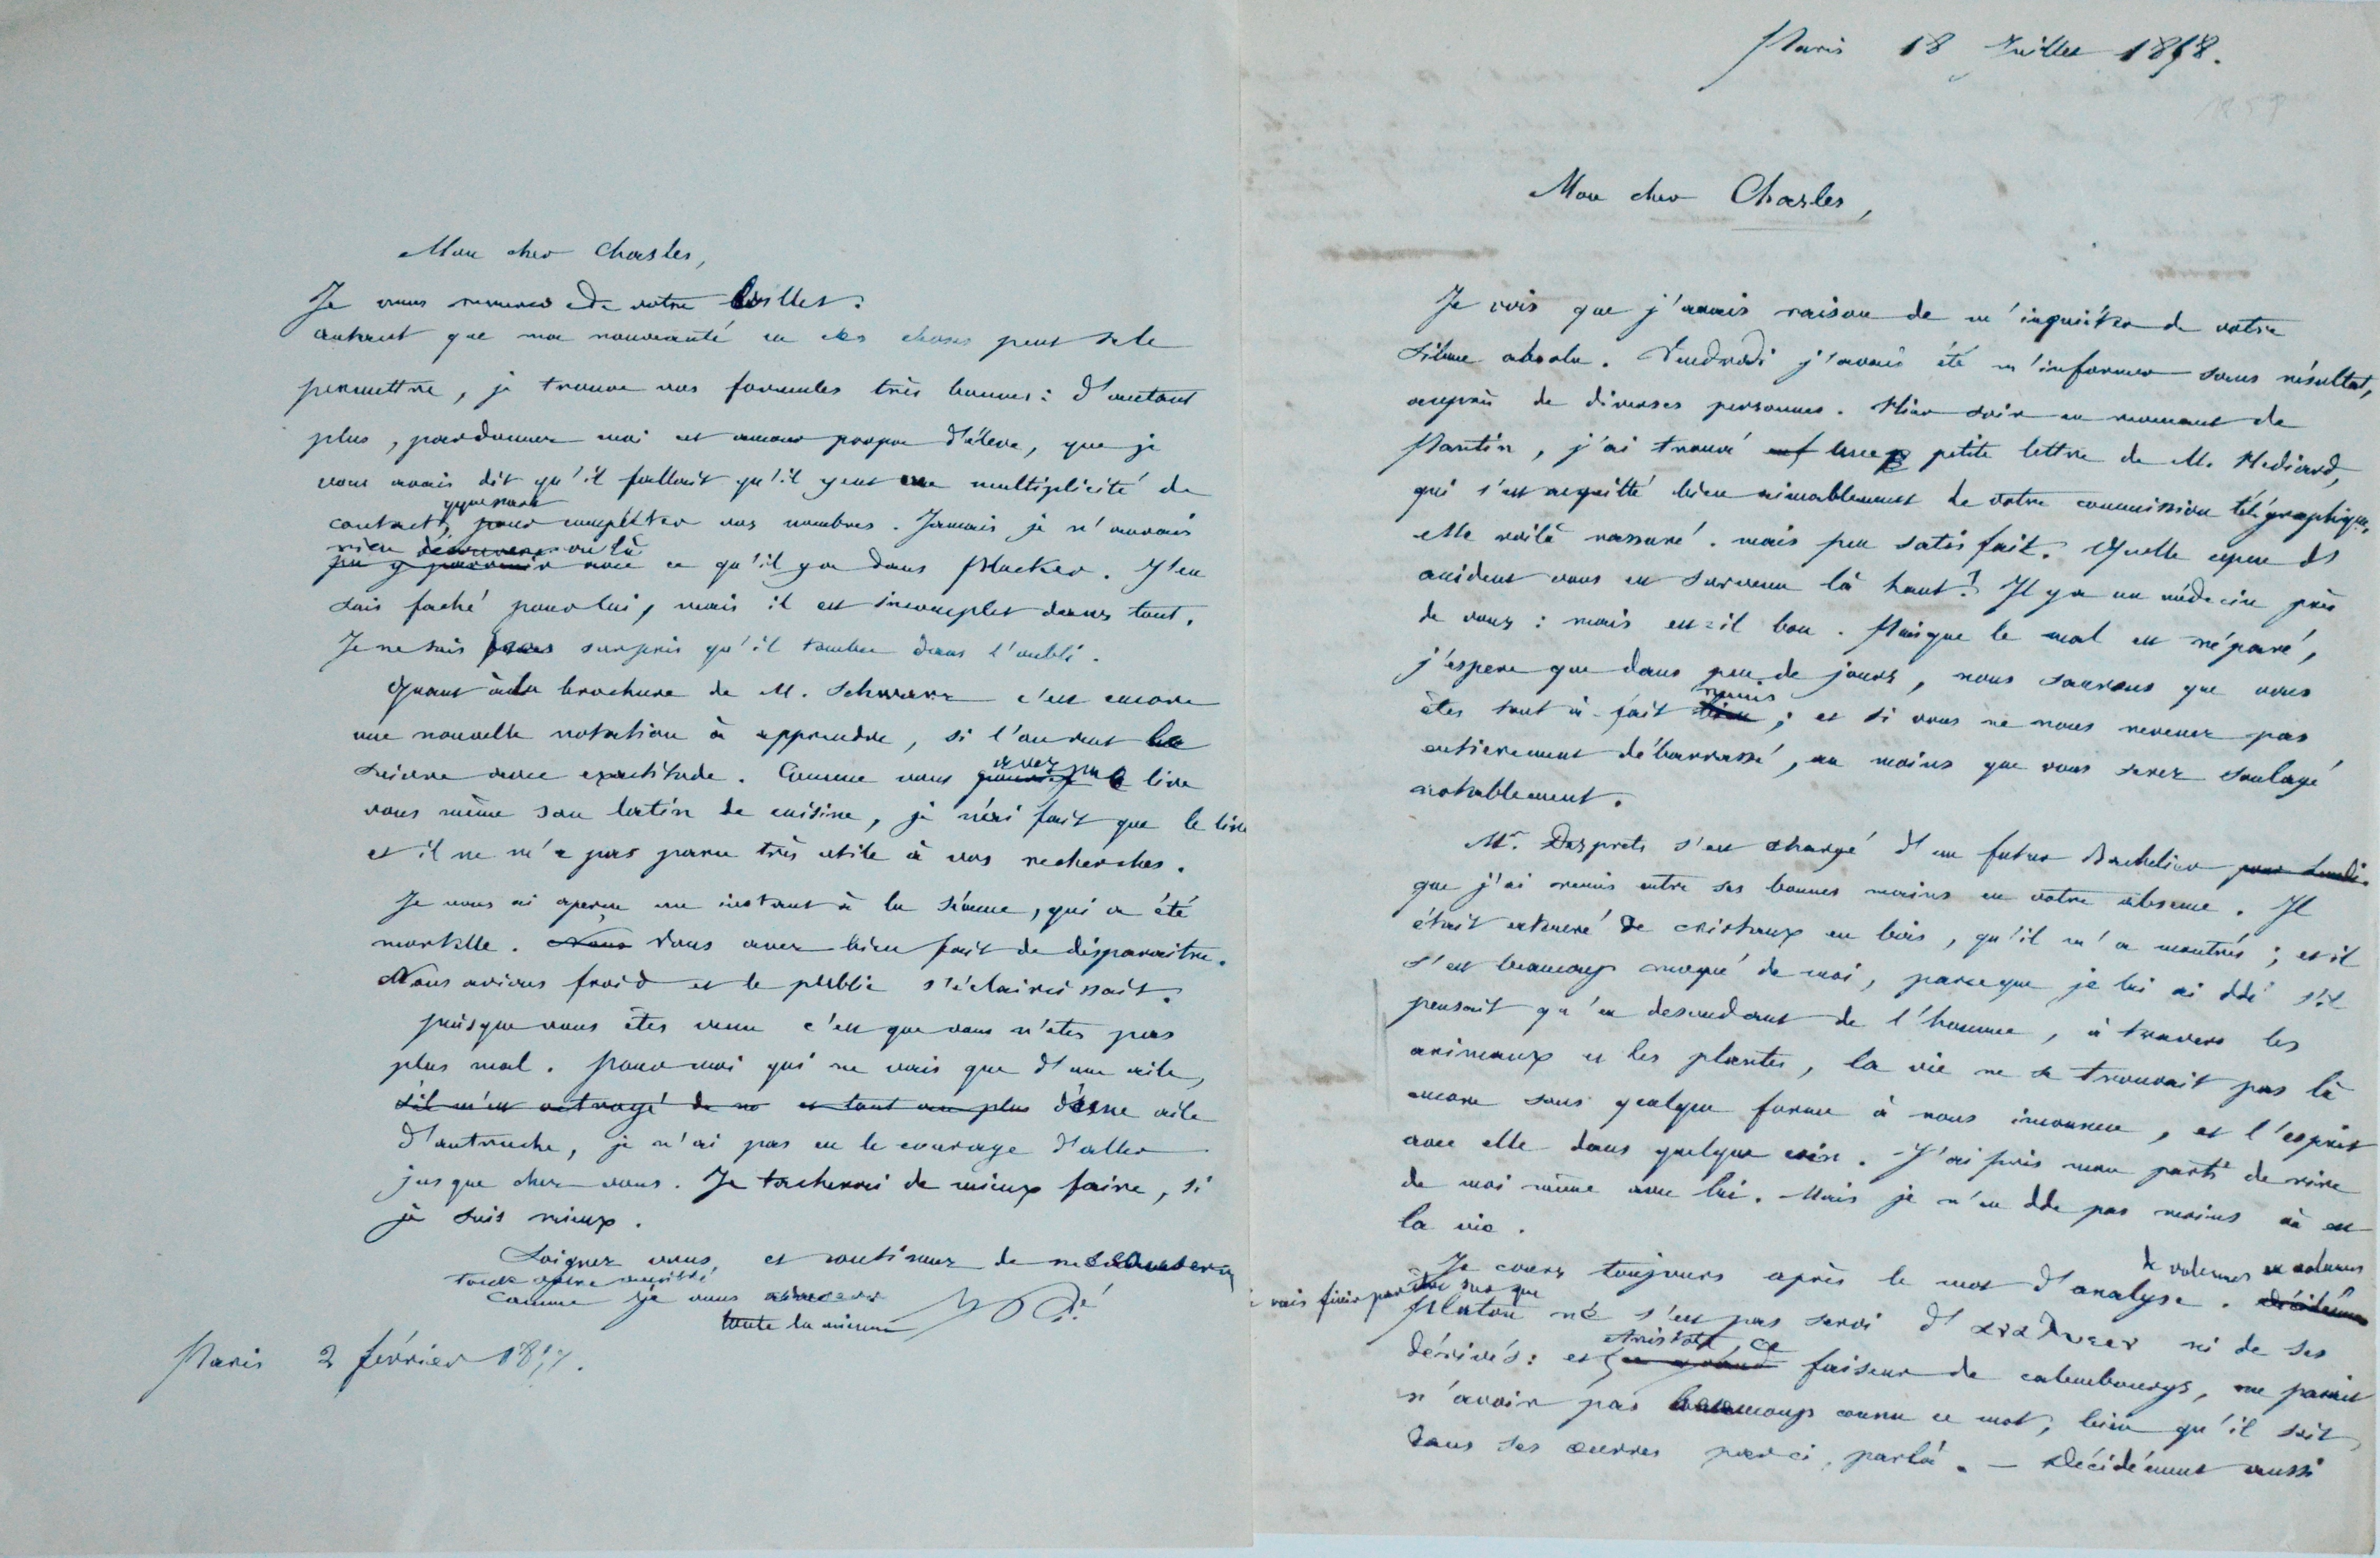 Mon cher Chasles,
Je vous remercie de votre billet.
autant que ma nouveauté en ces choses peut se le
permettre, je trouve vos formules très bonnes: d'autant
plus, pardonnez moi cet amour propre d'élève, que je
vous avais dit qu'il fallait qu'il y eut une multiplicité de
contacts, pour compléter vos nombres. Jamais je n'aurais
rien découvert au delà
pu y parvenir avec ce qu'il y a dans Plucker. J'en
suis faché pour lui, mais il est incomplet dans tout.
Je ne suis pas surpris qu'il tombe dans l'oubli.
Quant à la brochure de M. Schwarz c'est encore
une nouvelle notation à apprendre, si l'on veut la
suivre avec exactitude. Comme vous avez pu lire
vous même son latin de cuisine, je n'ai fait que le lire
et il ne m'a pas paru très utile à vos recherches.
Je vous ai aperçu un instant à la séance, qui a été
mortelle. Nous Vous avez bien fait de disparaitre.
Nous avions froid et le public s'éclaircissait.
puisque vous êtes venu c'est que vous n'êtes pas
plus mal. pour moi qui ne vais que d'une aile,
s'il m'est octroyé de et tout au plus d'une aile
d'autruche, je n'ai pas eu le courage d'aller
jusque chez vous. Je tacherai de mieux faire, si
je suis mieux.
Soignez vous, et continuez de me conserver
toute votre amitié
comme je vous conserve
toute la mienne
Paris 2 février 18
Paris 18 Juillet 1858.
1858
Mon cher Chasles,
Je vois que j'avais raison de m'inquiéter de votre
silence absolu. Vendredi j'avais été m'informer sans résultat,
auprès de diverses personnes. Hier soir en revenant de
Pantin, j'ai trouvé une petite lettre de M. Hediard,
qui s'est acquitté bien aimablement de votre commission télégraphique,
Me voilà rassuré. mais peu satisfait. Quelle espèce d'
accident vous est survenu là haut? Il y a un médecin près
de vous: mais est-il bon. Puisque le mal est réparé,
j'espere que dans peu de jours, nous saurons que vous
êtes tout à fait remis; et si vous ne nous revenez pas
entierement débarrassé, au moins que vous serez soulagé
notablement.
Mr. Desprets s'est chargé d'un futur Bachelier pour lundi
que j'ai remis entre ses bonnes mains en votre absence. Il
était entouré de cristaux en bois, qu'il m'a montrés; et il
s'est beaucoup moqué de moi, parceque je lui ai ddé s'il
pensait qu'en descendant de l'homme, à travers les
animaux et les plantes, la vie ne se trouvait pas là
encore sous quelque forme à nous inconnue, et l'esprit
avec elle dans quelque coin. J'ai pris mon parti de rire
de moi même avec lui. Mais je n'en dde pas moins où est
la vie.
Je cours toujours après le mot d'analyse. de volumes en volumes
je vais finir par dire que
Platon ne s'est pas servi d' ni de ses
dérivés: et Aristote, ce faiseur de calembourgs, me parait
n'avoir pas beaucoup connu ce mot, bien qu'il soit
dans ses œuvres par ci, par là. — Décidément aussi